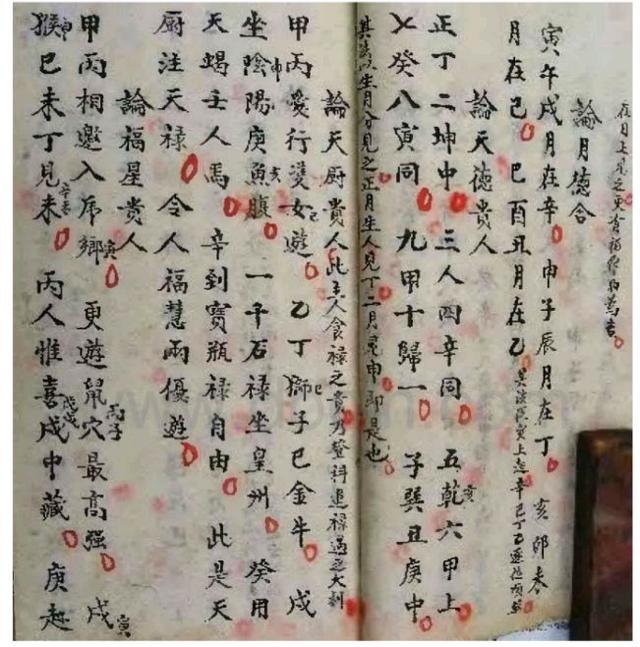 在月上見之更有福祭
論月德合
寅午戌月在辛 申子辰月在丁 亥卯未
月在己 巳酉丑月在乙
論天德貴人
正丁二坤中 三人四辛同 五乾亥六甲上
七癸八寅同 九甲十歸一 子巽丑庚中
其法以生月合見之正月生人見丁二月見申即是也
論天厨貴人此主人食禄之貴乃登科進禄遇之大利
甲丙愛行雙女遊巳 乙丁獅子已金牛 戌
坐陰陽申庚魚腹亥 一千石禄坐皇州 癸用
天蝎壬人馬 辛到寳瓶禄自由 此是天
厨注天禄 令人福慧兩優遊
論福星貴人
甲丙相邀入虎鄉寅 更遊鼠穴最高强丙子 戌
猴申巳未丁見未 丙人惟喜戌中藏 庚赶